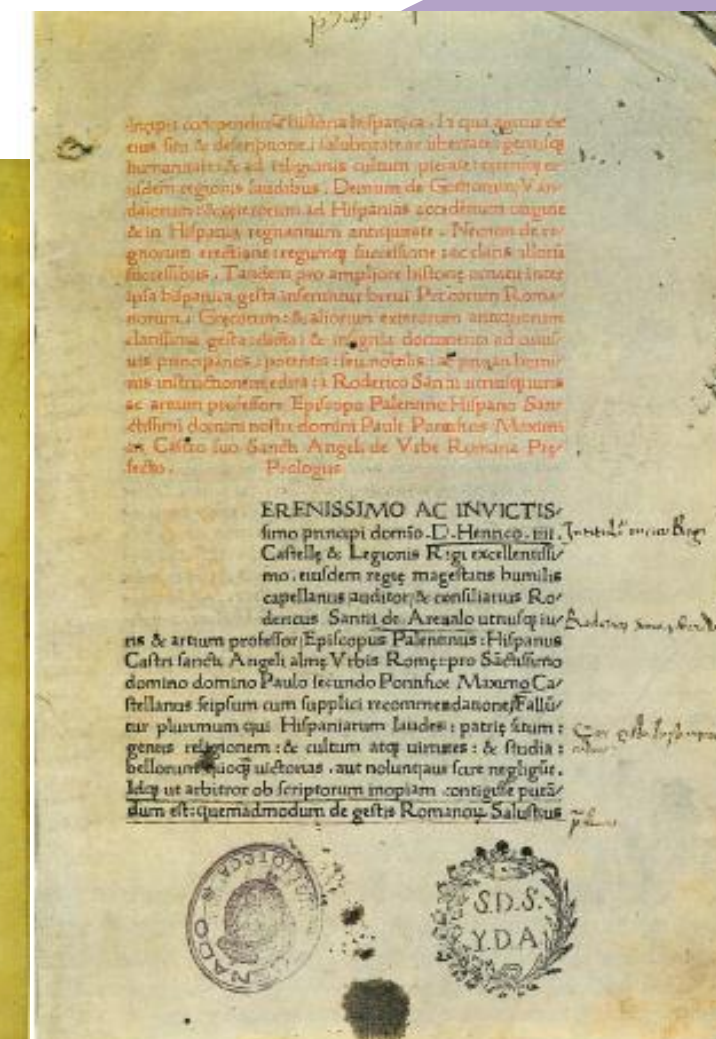 Incipit compendiosa historia hispanica. In qua agitur de
eius situ & descriptione: salubritate ac ubertate: gentiuq
humanitate: & ad religionis cultum pietate:
eiusdem regionis laudibus. Demum de Gothorum: Van/
dalorum: & ceterorum ad Hispanias accedentium origine
& in Hispania regnantium antiquitate. Necnon de re/
gnorum erectione: regumq successione: ac claris illoru
successibus. Tandem pro ampliore historie ornatu inter
ipsa hispanica gesta inseruntur breui Romа/
norum: Grecorum: & aliorum exterorum antiquorum
clarissima gesta: dicta: & insignia documenta ad cuius/
uis principantis: potentis: seu nobilis: ac priuati homi/
nis instructionem edita: a Roderico Santii utriusq iuris
ac artium professore Episcopo Palentino Hispano San/
ctissimi domini nostri domini Pauli Pontificis Maximi
in Castro suo Sancti Angeli de Vrbe Romana Pre/
fecto. Prologus
ERENISSIMO AC INVICTIS/
simo principi domīo .D. Henrico .iiii.
Castellę & Legionis Regi excellentissi/
mo. eiusdem regię magestatis humilis
capellanus auditor, & consiliarius Ro/
dericus Santii de Areualo utriusq iu/
ris & artium professor, Episcopus Palentinus: Hispanus
Castri sancti Angeli almę Vrbis Romę: pro Sāctissimo
domino domino Paulo secundo Pontifice Maximo Ca/
stellanus seipsum cum supplici recommendatione. Fallū/
tur plurimum qui Hispaniarum laudes: patrię situm:
gentis religionem: & cultum atq uirtutes: & studia:
bellorum quoq uictorias. aut nolunt aut scire negligūt.
Idq ut arbitror ob scriptorum inopiam contigisse putā/
dum est: quemadmodum de gestis Romanoꝝ Salustius
BIBLIOTECA
SENADO
S.D.S.
Y.D.A